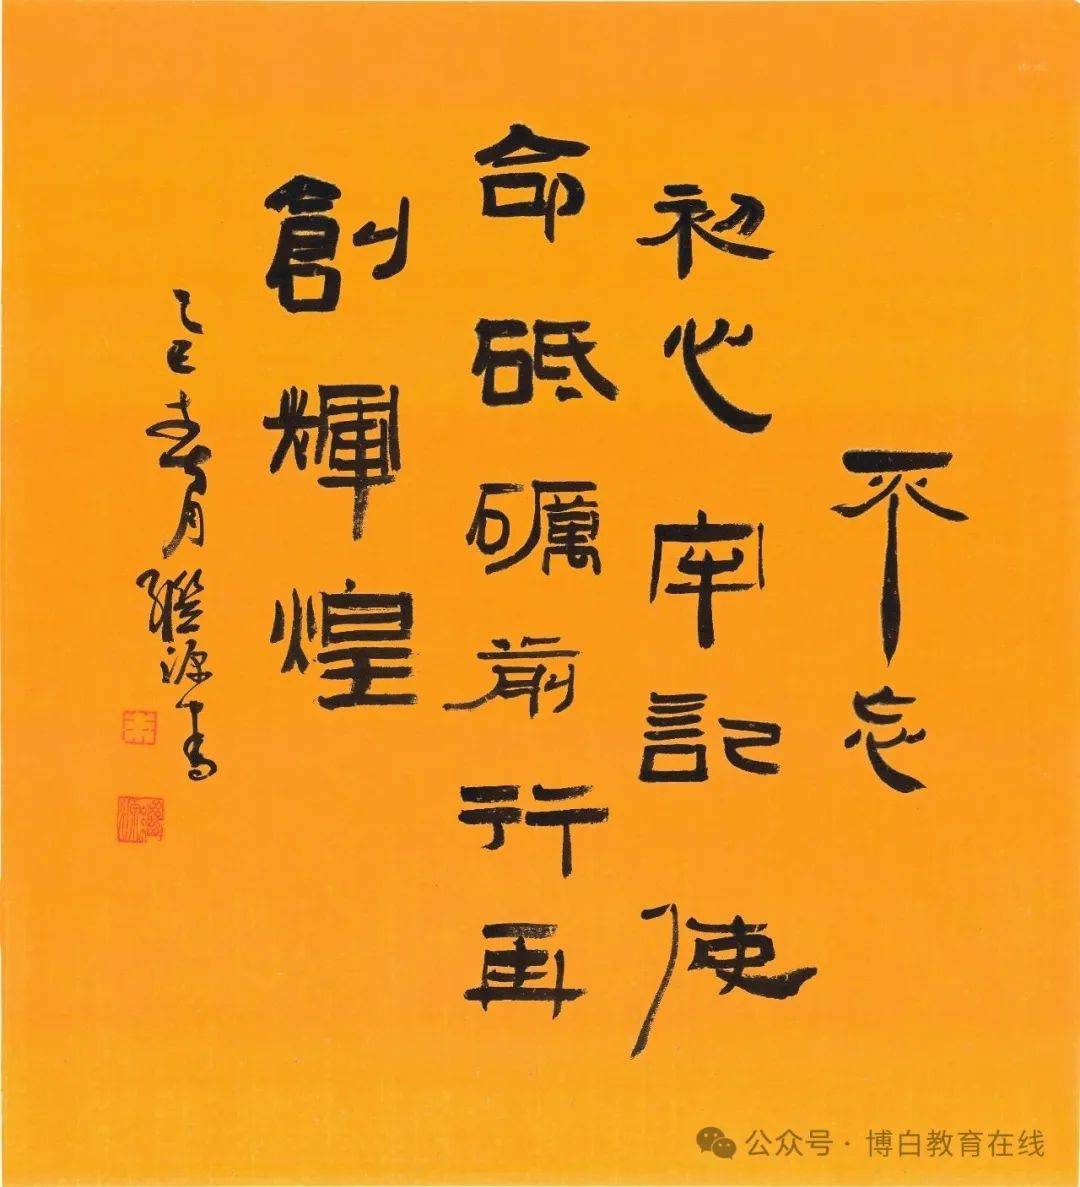 不忘
初心牢記使
命砥礪前行再
創輝煌
乙巳春月聯源書
朱
公众号·博白教育在线